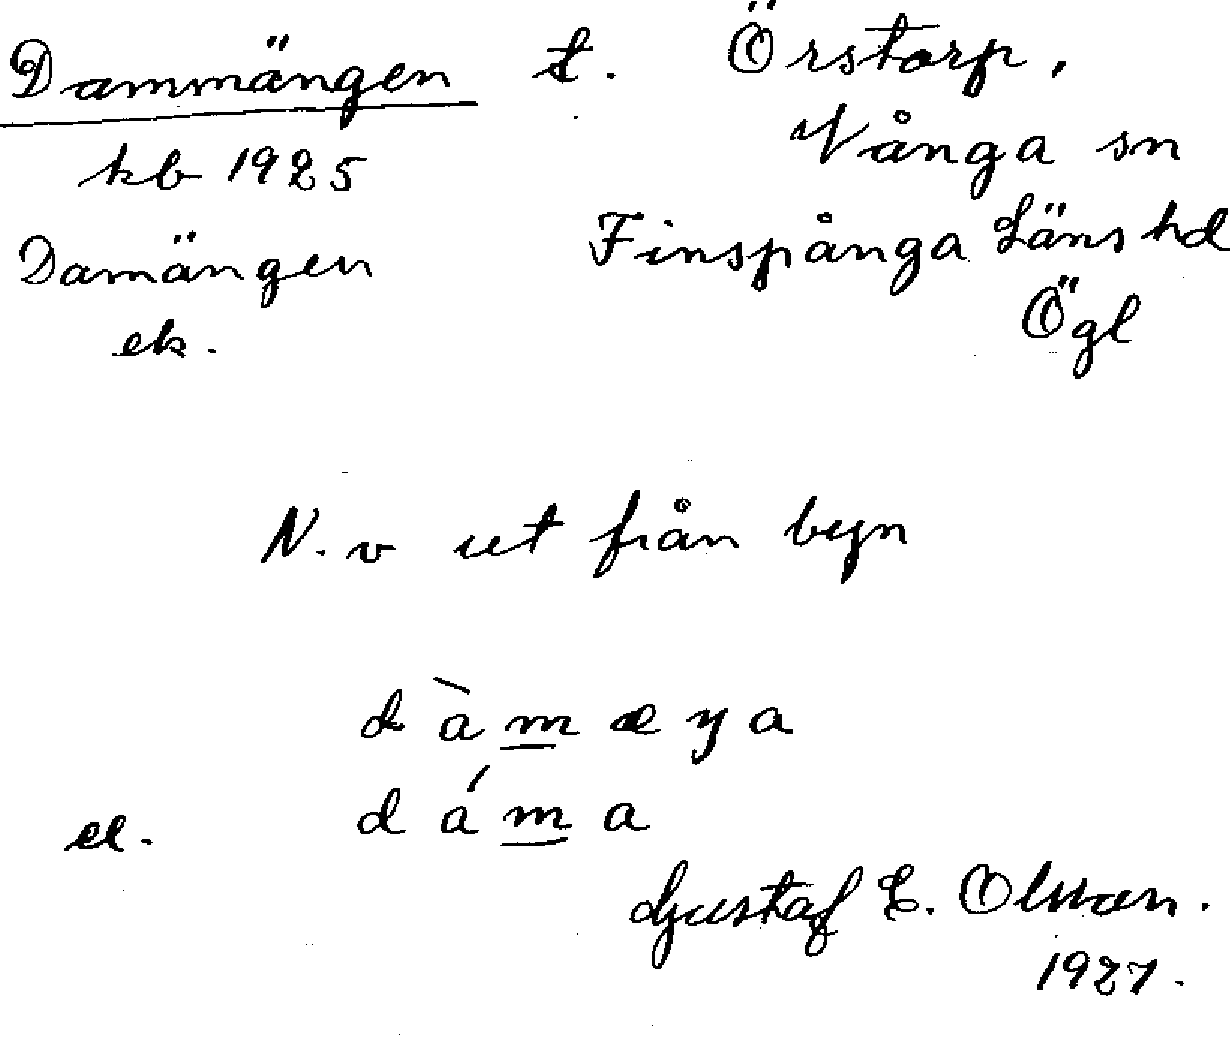 Dammängen t. Örstorp,
kb 1925 Vånga sn
Damängen Finspånga Läns hd
ek. Ögl
N. v ut från byn
dàmæŋa
el. dáma
Gustaf E. Olsson.
1927.